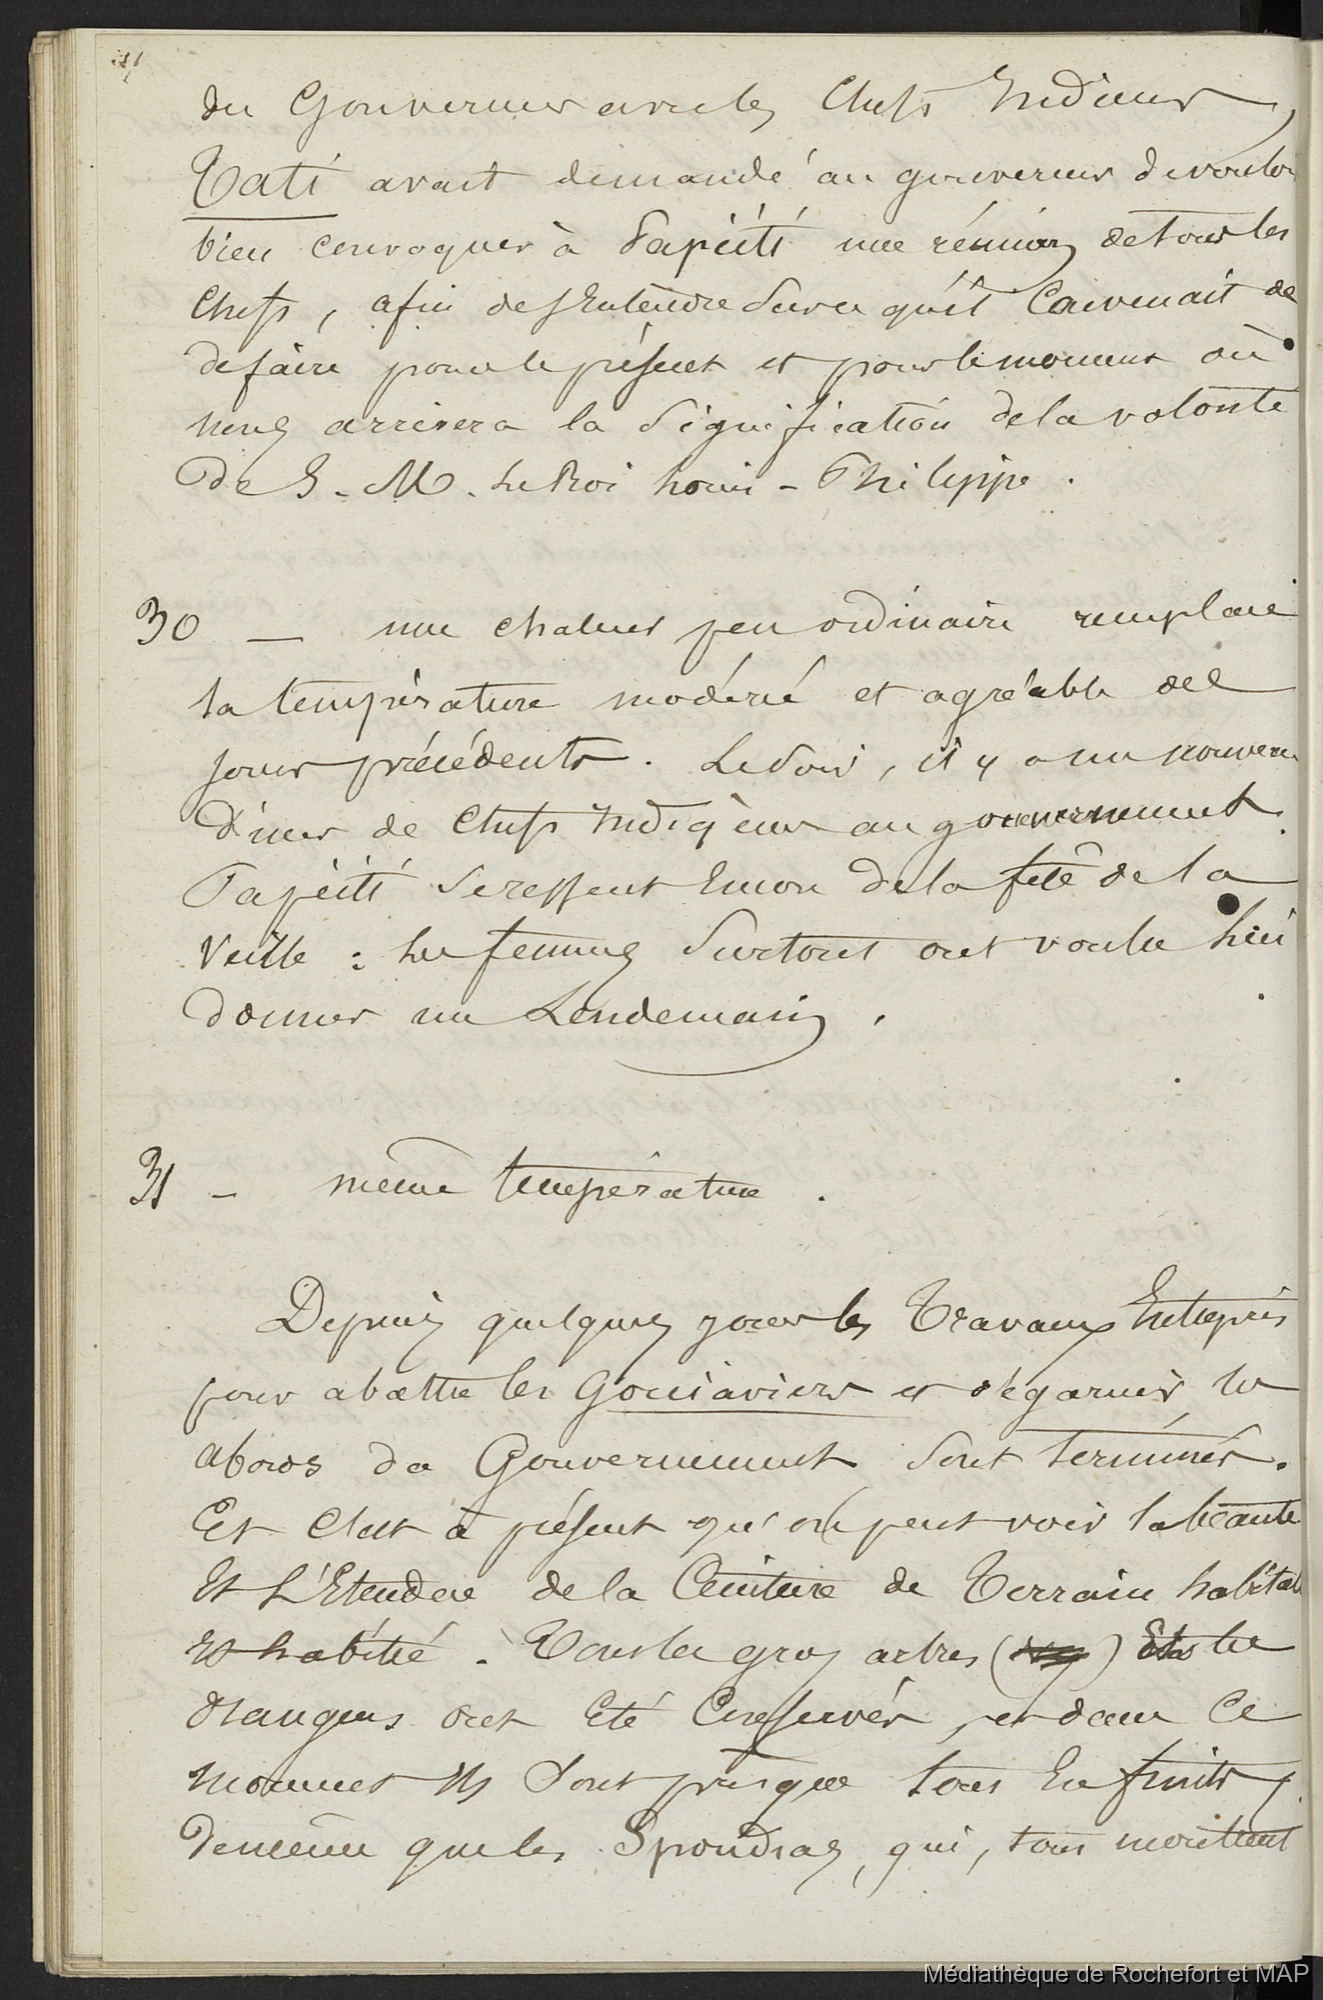 du Gouverneur avec les Chefs Indiens,
Tati avait demandé au gouverneur de vouloir
bien convoquer à Papéïti une réunion de tous les
Chefs, afin de s'Entendre Sur ce qu'il Convenait de
de faire pour le présent et pour le moment où
nous arrivera la Signification de la volonté
De S. M. Le Roi Louis-Philippe.
30 — une chaleur peu ordinaire remplace
la température modérée et agréable des
jours précédents. Le Soir, il y a un nouveau
Diner de Chefs Indigènes au gouvernement.
Papéïti Se ressent Encore de la fête de la
Veille : les femmes Surtout ont voulu lui
donner un Lendemain.
31 - même température.
Depuis quelques jours les Travaux Entrepris
pour abattre les Gouiaviers et dégarnir les
abords du Gouvernement Sont terminés.
Et C'est à présent qu'on peut voir la beauté
Et L'Etendue de la Ceinture de Terrain habitable
Et habité. Tous les gros arbres ( ) Et les
Orangers ont Eté Conservés, et dans Ce
moment Ils Sont presque tous En fruits,
De même que les Spondias, qui, tous mettent
Médiathèque de Rochefort et MAP